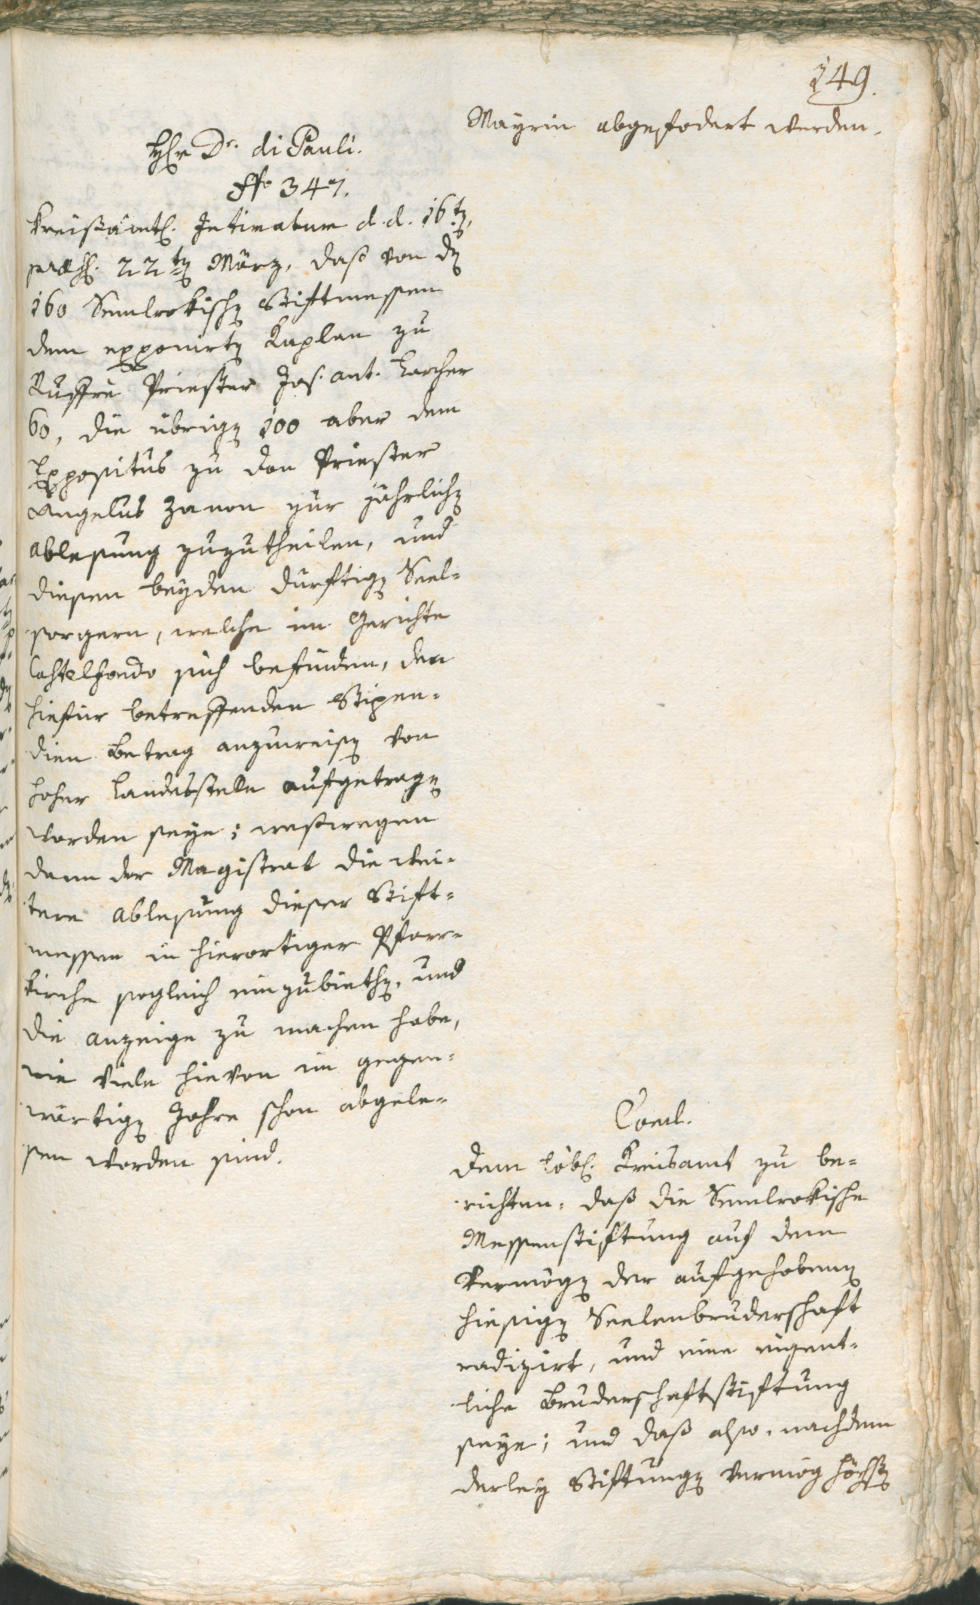 149.
Mayrin abgefodert werden.
H[err] Dr. di Pauli.
No 347.
Kreisämtl. Intimatum d. d. 16ten,
praes. 22ten März, daß von den
160 Semlrokischen Stiftmessen
dem exponirten Kaplan zu
Ruffrè Priester Jos. Ant. Larcher
60, die übrigen 100 aber dem
Expositus zu Don Priester
Angelus Zanon zur jährlichen
Ablesung zuzutheilen, und
diesen beyden dürftigen Seel-
sorgern, welche im Gerichte
Castelfondo sich befinden, den
hiefür betreffenden Stipen-
dien Betrag anzuweisen von
hoher Landesstelle aufgetragen
worden seye; weßwegen
dann der Magistrat die wei-
tere Ablesung dieser Stift-
messen in hierortiger Pfarr-
kirche sogleich einzubiethen, und
die Anzeige zu machen habe,
wie viele hievon im gegen-
wärtigen Jahre schon abgele-
sen worden sind.
Concl.
Dem löbl. Kreisamt zu be-
richten, daß die Semlrokische
Messenstiftung auf dem
Vermögen der aufgehobenen
hiesigen Seelenbruderschaft
radizirt, und eine eigent-
liche Bruderschaftsstiftung
seye; und daß also, nachdem
derley Stiftungen vermög höchsten